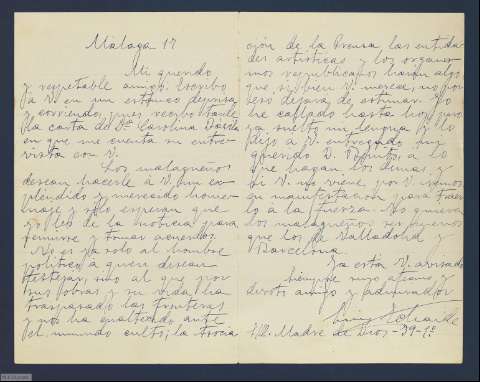 Malaga 17
Mi querido
y respetable amigo: Escribo
a V en un estanco deprisa
y corriendo, pues recibo
la carta de Dª Carolina
en que me cuenta su entre-
vista con V.
Los malagueños
desean hacerle a V. un es-
pléndido y merecido home-
naje y solo esperan que
yo les de la noticia para
reunirse y tomar acuerdos.
No es ya solo al hombre
político a quien desean
festejar, sino al que por
sus obras y su vida, ha
traspasado las fronteras
y nos ha enaltecido ante
el mundo culto; la Asocia
ción de la Prensa, las entida-
des artísticas y los organis-
mos republicanos harían algo
que, si bien V. merece, no por
eso dejara de estimar. Yo
he callado hasta hoy, pero
ya suelto mi lengua y le
dijo a V. entregado mi
querido D. a lo
que hagan los demas, y
si V. no viene, por V. iremos
en manifestación para traer-
lo a la fuerza. No quieren
los malagueños ser menos
que los de Valladolid y
Barcelona.
Ya está V. avisado
Siempre suyo afmo.
devoto amigo y admirador
S/c. Madre de Dios - 39-1º